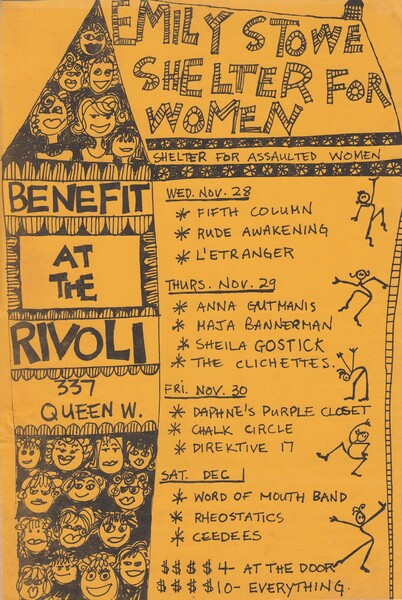 EMILY STOWE
SHELTER FOR
WOMEN
SHELTER FOR ASSAULTED WOMEN
BENEFIT
AT
THE
RIVOLI
337
QUEEN W.
WED. NOV. 28
* FIFTH COLUMN
* RUDE AWAKENING
* L'ETRANGER
THURS. NOV. 29
* ANNA GUTMANIS
* MAJA BANNERMAN
* SHEILA GOSTICK
* THE CLICHETTES.
FRI. NOV. 30
* DAPHNE'S PURPLE CLOSET
* CHALK CIRCLE
* DIREKTIVE 17
SAT. DEC 1
* WORD OF MOUTH BAND
* RHEOSTATICS
* CEEDEES
$$$$4- AT THE DOOR
$$$$10- EVERYTHING.